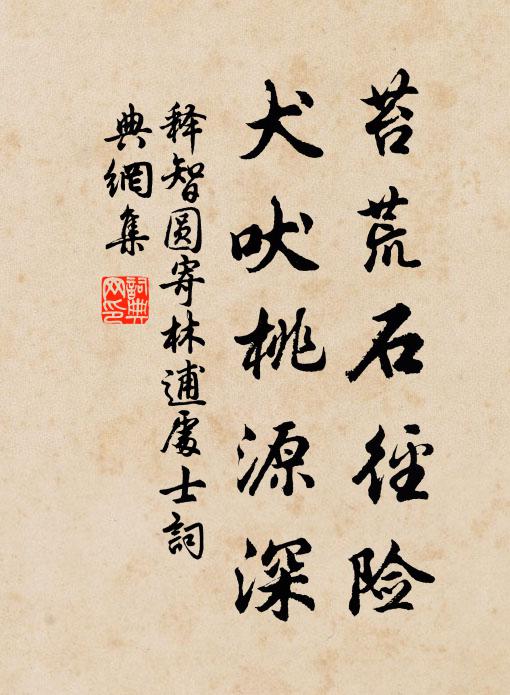 苔荒石径险
犬吠桃源深
释智圆寄林逋处士词
典網集
詞典
网印